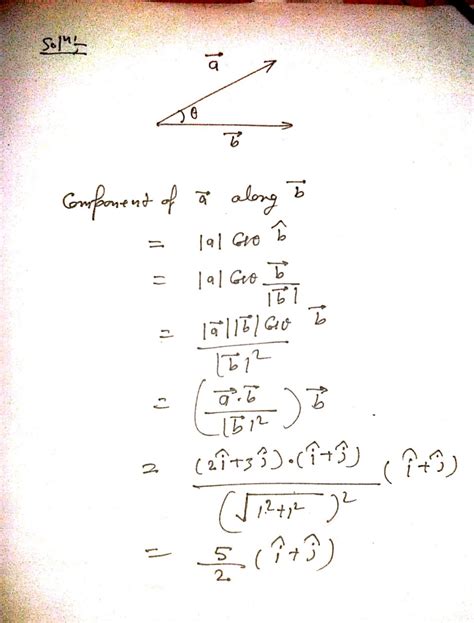 Solⁿ:-
a⃗
θ
b⃗
Component of a⃗ along b⃗
= |a| Cosθ b̂
= |a| Cosθ b⃗/|b⃗|
= |a⃗||b⃗| Cosθ/|b⃗|² b⃗
= (a⃗·b⃗/|b⃗|²) b⃗
= (2î+3ĵ)·(î+ĵ)/(√1²+1²)² (î+ĵ)
= 5/2 (î+ĵ)